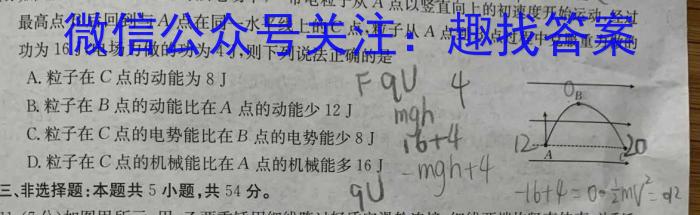 带电粒子从A点以竖直向上的初速度开始运动,经过
最高点B后回到与A点在同一水平线上的C点,粒子从A点到B点过程中克服重力做的
功为16J,电场力做的功为4J,则下列说法正确的是
微信公众号关注：趣找答案
A.粒子在C点的动能为8J
B.粒子在B点的动能比在A点的动能少12J
C.粒子在C点的电势能比在B点的电势能少8J
D.粒子在C点的机械能比在A点的机械能多16J
三、非选择题:本题共5小题,共54分。
F qU 4
mgh
16+4
-mgh+4
qU
0
B
12
A
20
-16+4=0-½mV²=-12